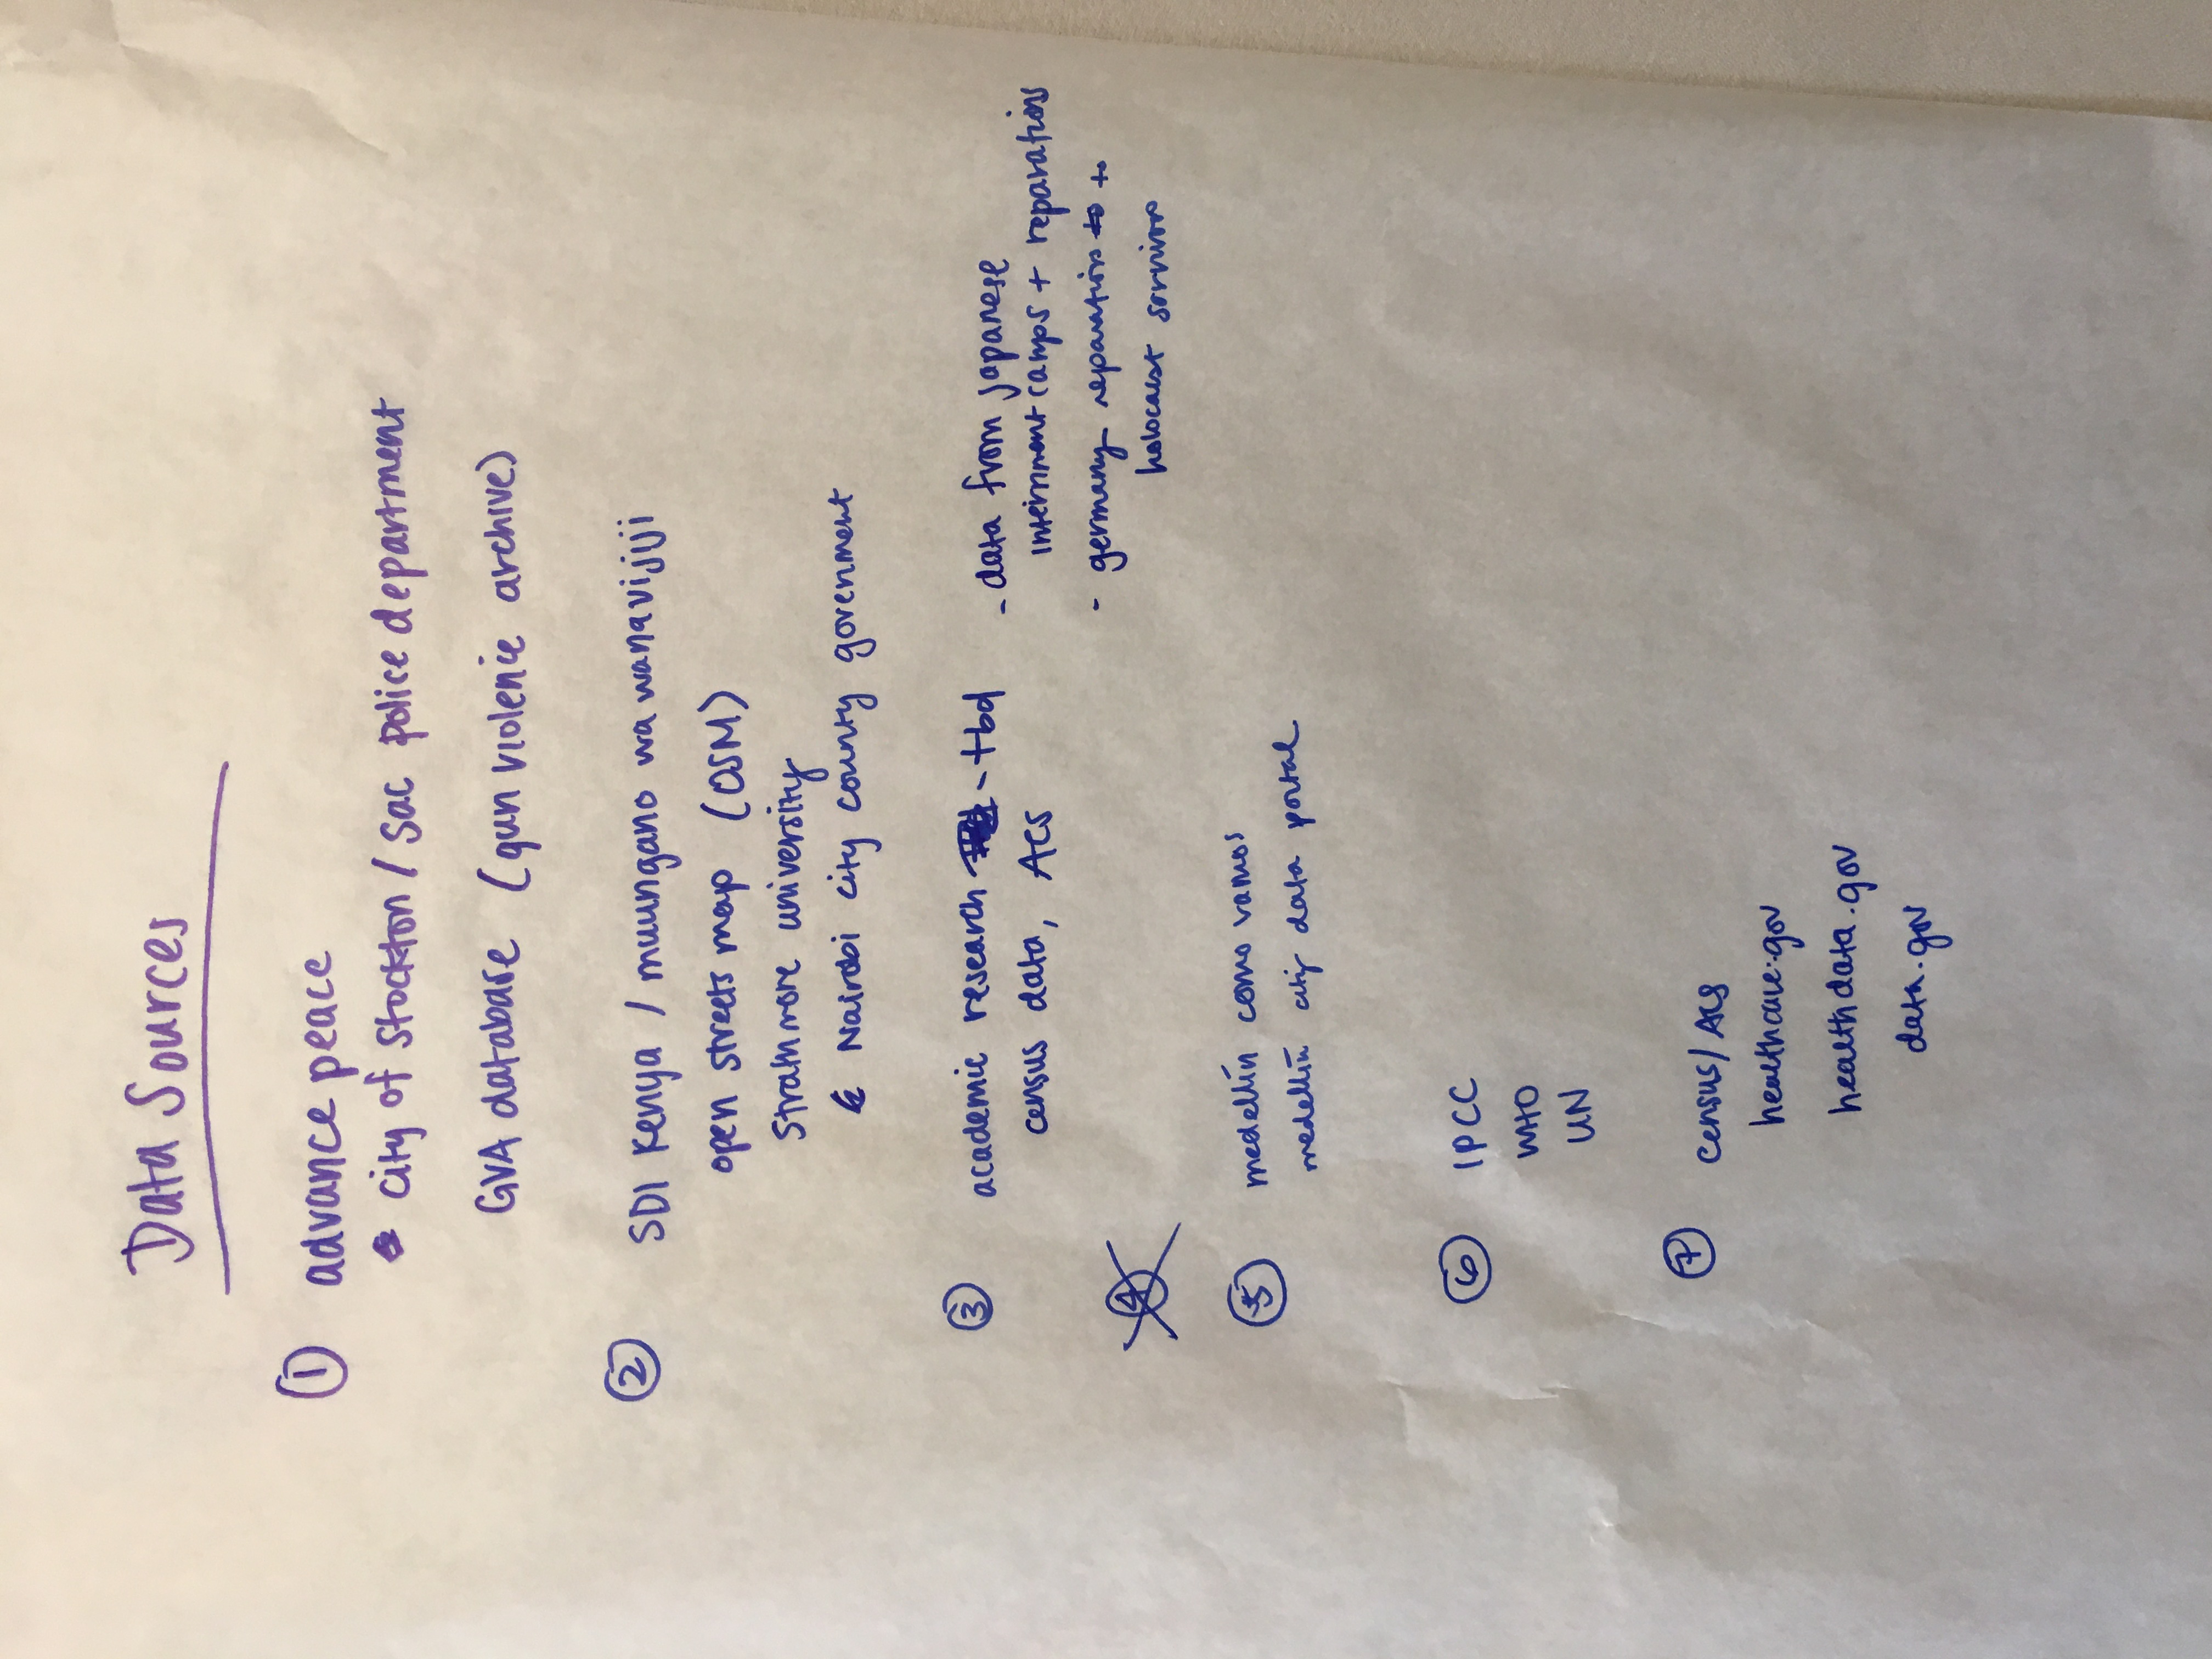 Data Sources
① advance peace
city of Stockton / Sac police department
GVA database (gun violence archive)
② SDI Kenya / muungano wa wanavijiji
open streets map (OSM)
Strathmore university
Nairobi city county govenment
③ academic research - tbd
census data, ACS
- data from japanese
internment camps + reparations
- germany reparations to
holocaust survivors
④
⑤ medellín como vamos
medellín city data portal
⑥ IPCC
WHO
UN
⑦ census/ACS
healthcare.gov
healthdata.gov
data.gov